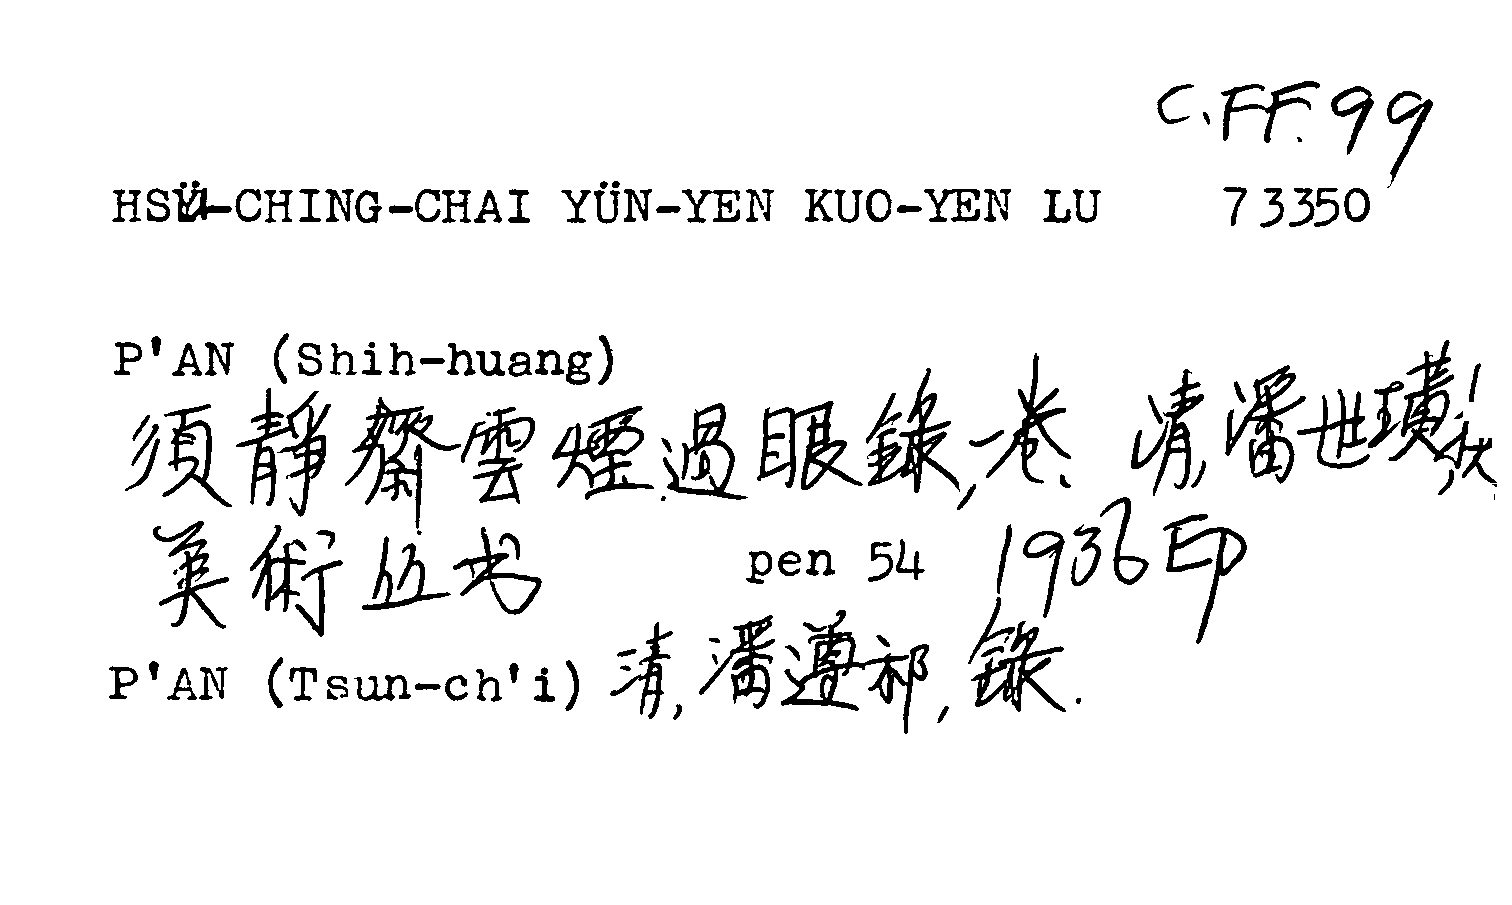 C.FF.99
HSÜ-CHING-CHAI YÜN-YEN KUO-YEN LU 73350
P'AN (Shih-huang)
須靜齋雲煙過眼錄,一卷、清,潘世璜,
美術丛书 pen 54 1936印
P'AN (Tsun-ch'i) 清,潘遵祁,錄.